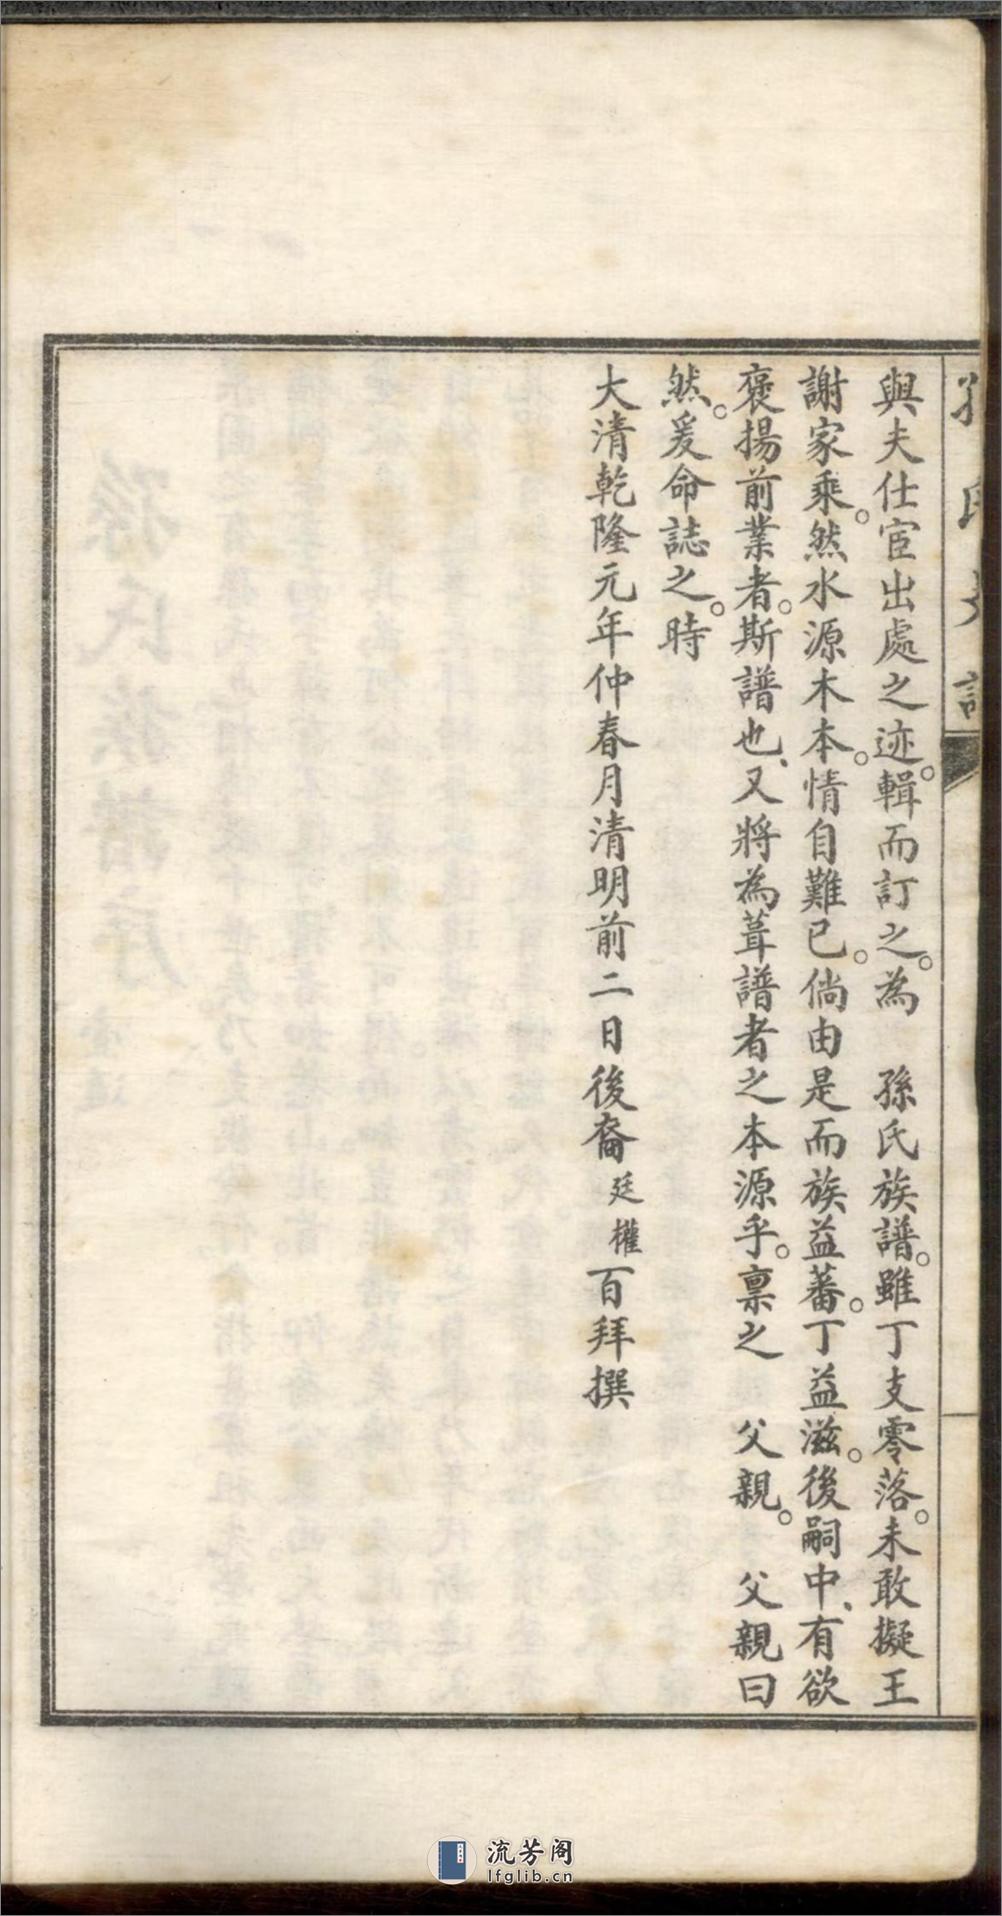 與夫仕宦出處之迹。輯而訂之。為　孫氏族譜。雖丁支零落。未敢擬王
謝家乘。然水源木本。情自難已。倘由是而族益蕃。丁益滋。後嗣中、有欲
褒揚前業者。斯譜也、又將為葺譜者之本源乎。稟之　父親。父親曰
然。爰命誌之。時
大清乾隆元年仲春月清明前二日後裔廷權百拜撰
流芳阁
lfglib.cn